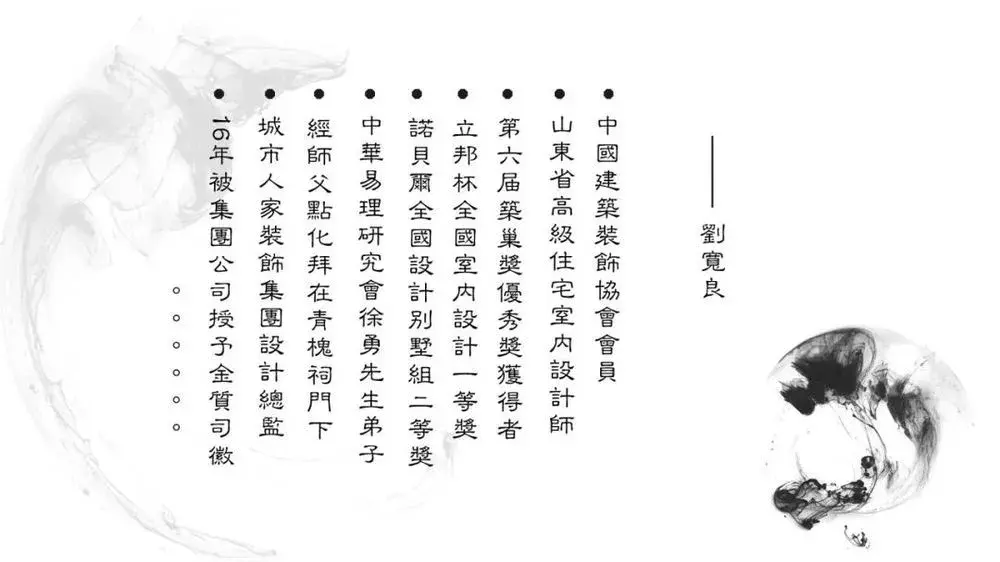 ——劉寬良
● 中國建築裝飾協會會員
● 山東省高級住宅室內設計師
● 第六屆築巢獎優秀獎獲得者
● 立邦杯全國室內設計一等獎
● 諾貝爾全國設計別墅組二等獎
● 中華易理研究會徐勇先生弟子
● 經師父點化拜在青槐祠門下
● 城市人家裝飾集團設計總監
● 16年被集團公司授予金質司徽
。。。。。。